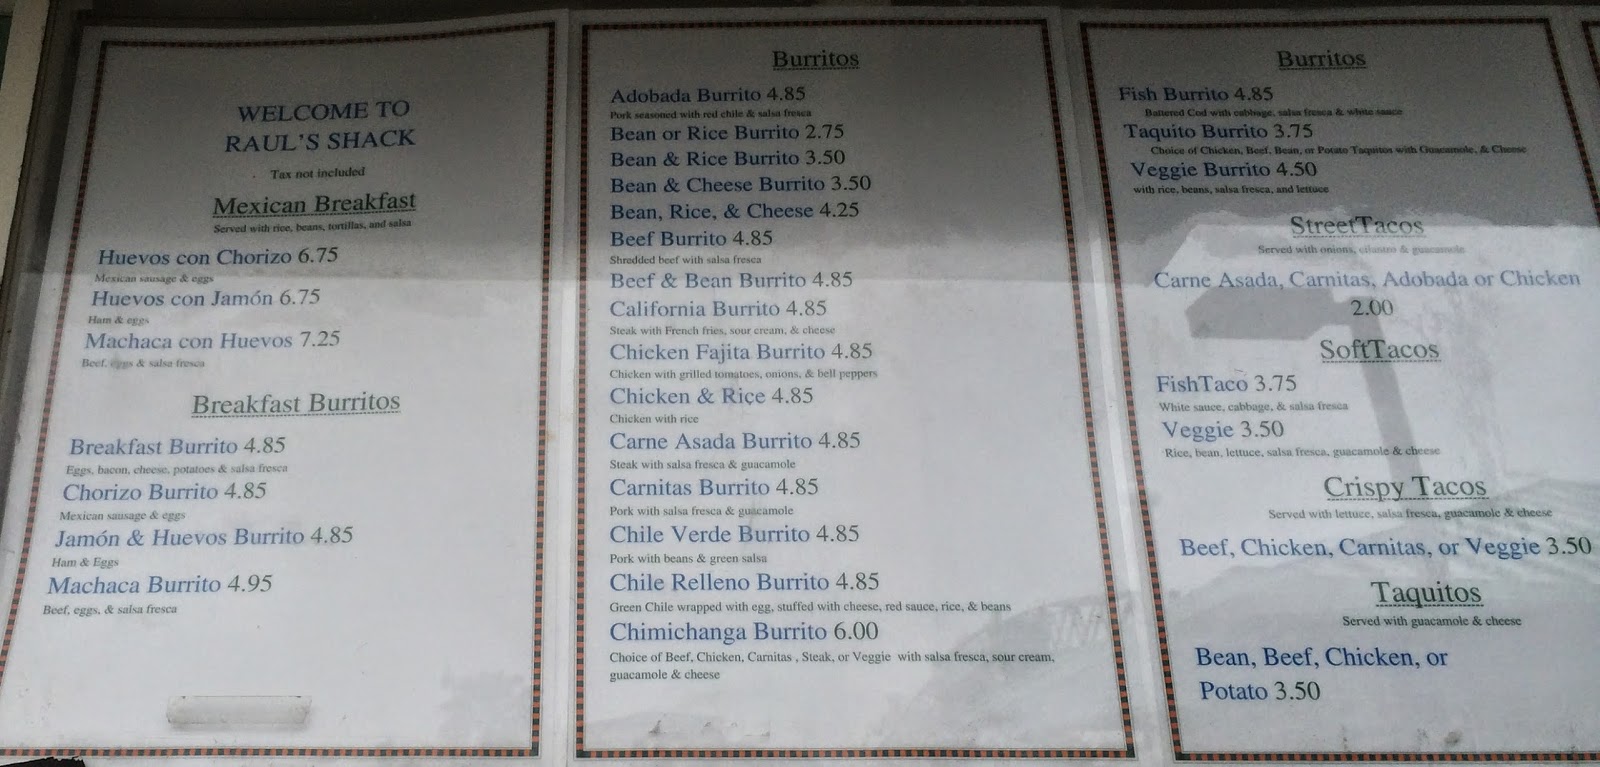 WELCOME TO
RAUL'S SHACK
Tax not included
Mexican Breakfast
Served with rice, beans, tortillas, and salsa
Huevos con Chorizo 6.75
Mexican sausage & eggs
Huevos con Jamón 6.75
Ham & eggs
Machaca con Huevos 7.25
Beef, eggs & salsa fresca
Breakfast Burritos
Breakfast Burrito 4.85
Eggs, bacon, cheese, potatoes & salsa fresca
Chorizo Burrito 4.85
Mexican sausage & eggs
Jamón & Huevos Burrito 4.85
Ham & Eggs
Machaca Burrito 4.95
Beef, eggs, & salsa fresca
Burritos
Adobada Burrito 4.85
Pork seasoned with red chile & salsa fresca
Bean or Rice Burrito 2.75
Bean & Rice Burrito 3.50
Bean & Cheese Burrito 3.50
Bean, Rice, & Cheese 4.25
Beef Burrito 4.85
Shredded beef with salsa fresca
Beef & Bean Burrito 4.85
California Burrito 4.85
Steak with French fries, sour cream, & cheese
Chicken Fajita Burrito 4.85
Chicken with grilled tomatoes, onions, & bell peppers
Chicken & Rice 4.85
Chicken with rice
Carne Asada Burrito 4.85
Steak with salsa fresca & guacamole
Carnitas Burrito 4.85
Pork with salsa fresca & guacamole
Chile Verde Burrito 4.85
Pork with beans & green salsa
Chile Relleno Burrito 4.85
Green Chile wrapped with egg, stuffed with cheese, red sauce, rice, & beans
Chimichanga Burrito 6.00
Choice of Beef, Chicken, Carnitas , Steak, or Veggie with salsa fresca, sour cream,
guacamole & cheese
Burritos
Fish Burrito 4.85
Battered Cod with cabbage, salsa fresca & white sauce
Taquito Burrito 3.75
Choice of Chicken, Beef, Bean, or Potato Taquitos with Guacamole, & Cheese
Veggie Burrito 4.50
with rice, beans, salsa fresca, and lettuce
StreetTacos
Served with onions, cilantro & guacamole
Carne Asada, Carnitas, Adobada or Chicken
2.00
SoftTacos
FishTaco 3.75
White sauce, cabbage, & salsa fresca
Veggie 3.50
Rice, bean, lettuce, salsa fresca, guacamole & cheese
Crispy Tacos
Served with lettuce, salsa fresca, guacamole & cheese
Beef, Chicken, Carnitas, or Veggie 3.50
Taquitos
Served with guacamole & cheese
Bean, Beef, Chicken, or
Potato 3.50